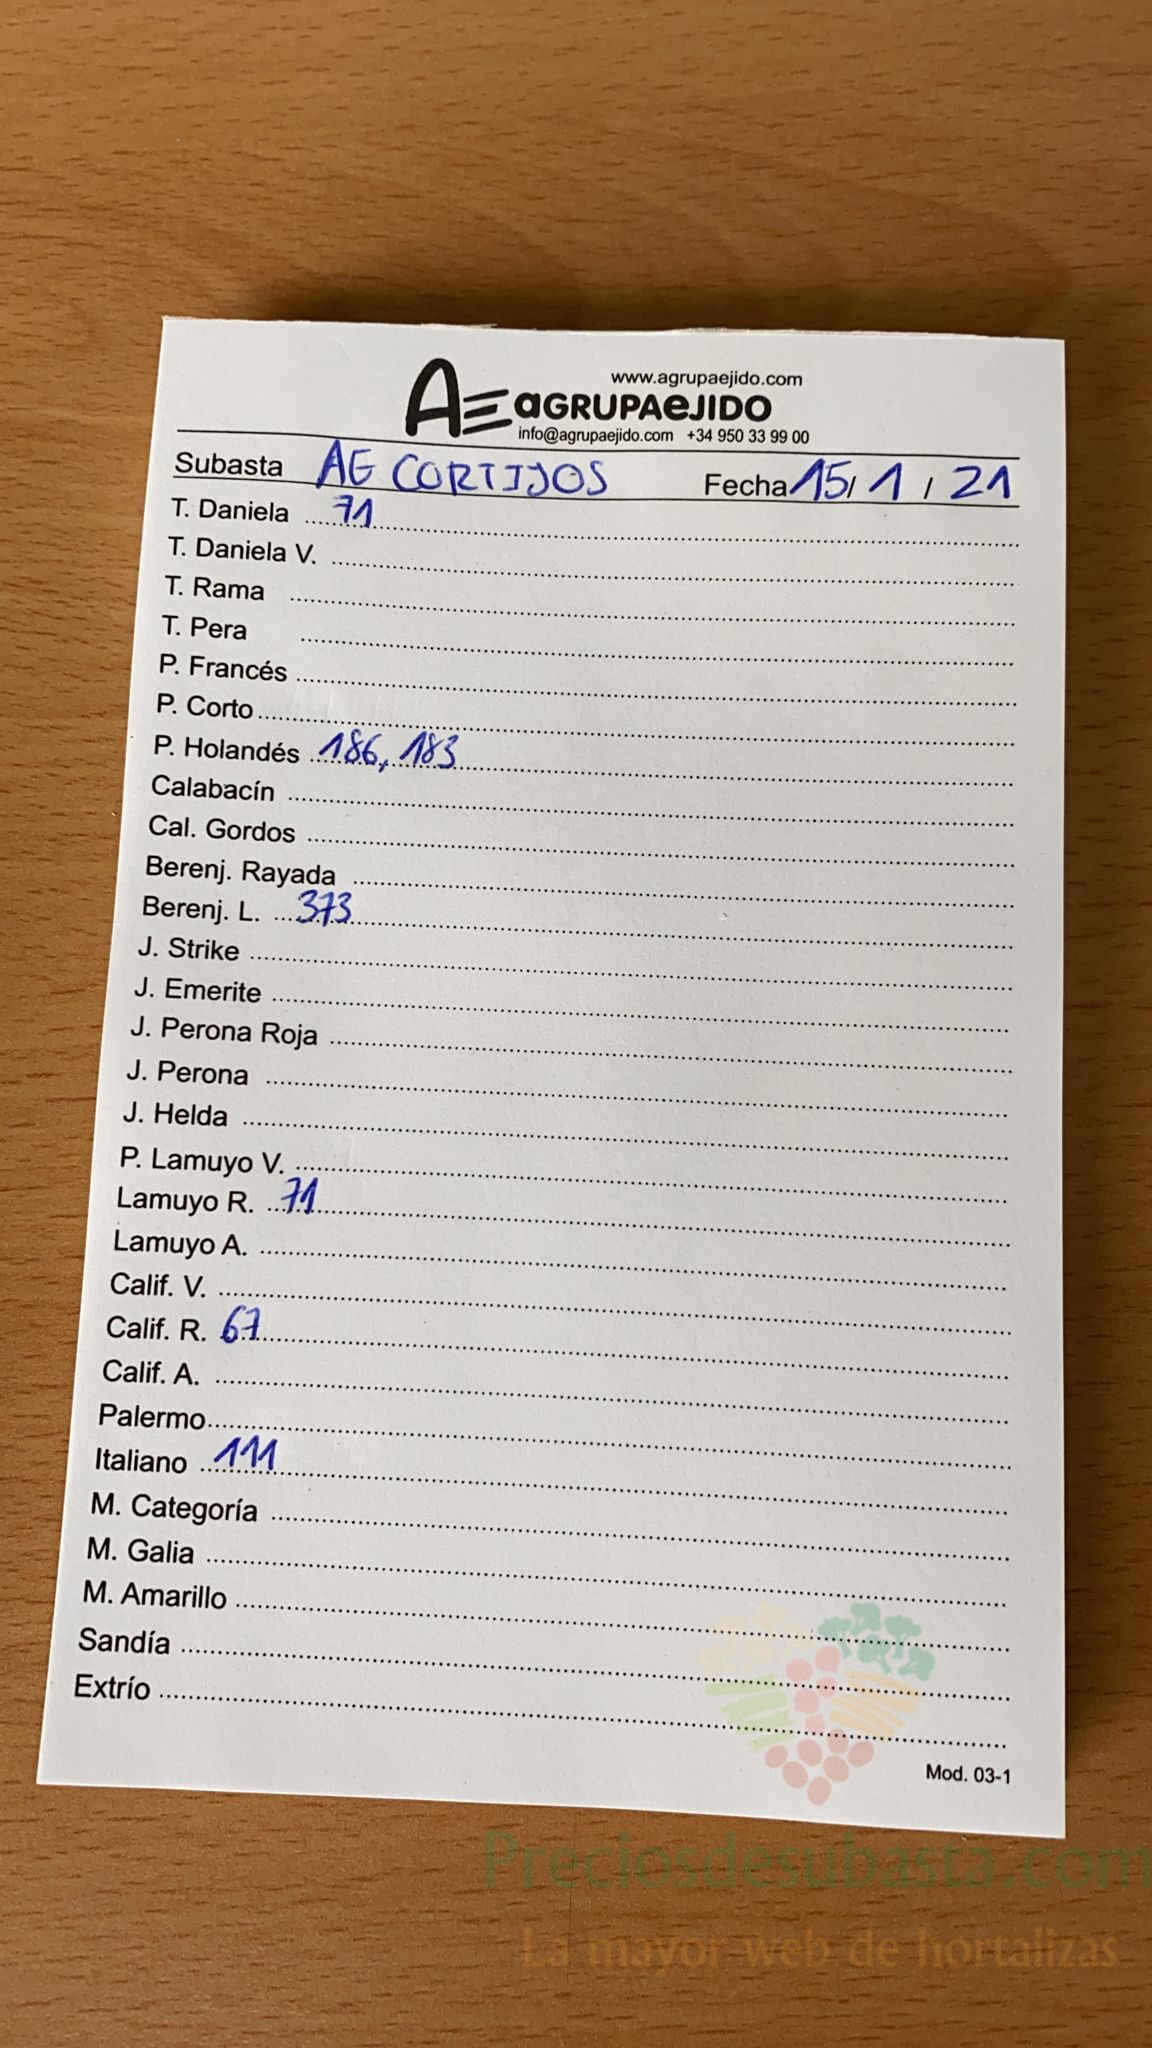 www.agrupaejido.com
AE aGRUPAeJIDO
info@agrupaejido.com +34 950 33 99 00
Subasta AE CORTIJOS Fecha 15/1/21
T. Daniela 71
T. Daniela V.
T. Rama
T. Pera
P. Francés
P. Corto
P. Holandés 186, 183
Calabacín
Cal. Gordos
Berenj. Rayada
Berenj. L. 373
J. Strike
J. Emerite
J. Perona Roja
J. Perona
J. Helda
P. Lamuyo V.
Lamuyo R. 71
Lamuyo A.
Calif. V.
Calif. R. 67
Calif. A.
Palermo
Italiano 111
M. Categoría
M. Galia
M. Amarillo
Sandía
Extrío
Mod. 03-1
Preciosdesubasta.com
La mayor web de hortalizas